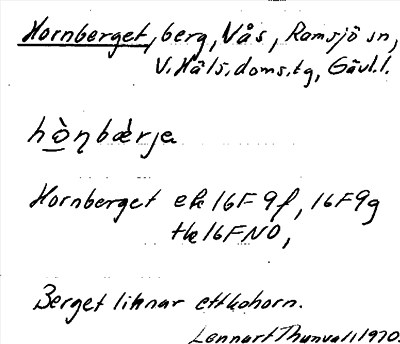 Hornberget, berg, Vås, Ramsjö sn,
V. Häls. doms.tg, Gävl.l.
hò̲ɳbæ̀rja
Hornberget ek 16F9f, 16F9g
tk 16FNO,
Berget liknar ett kohorn.
Lennart Thunvall 1970.